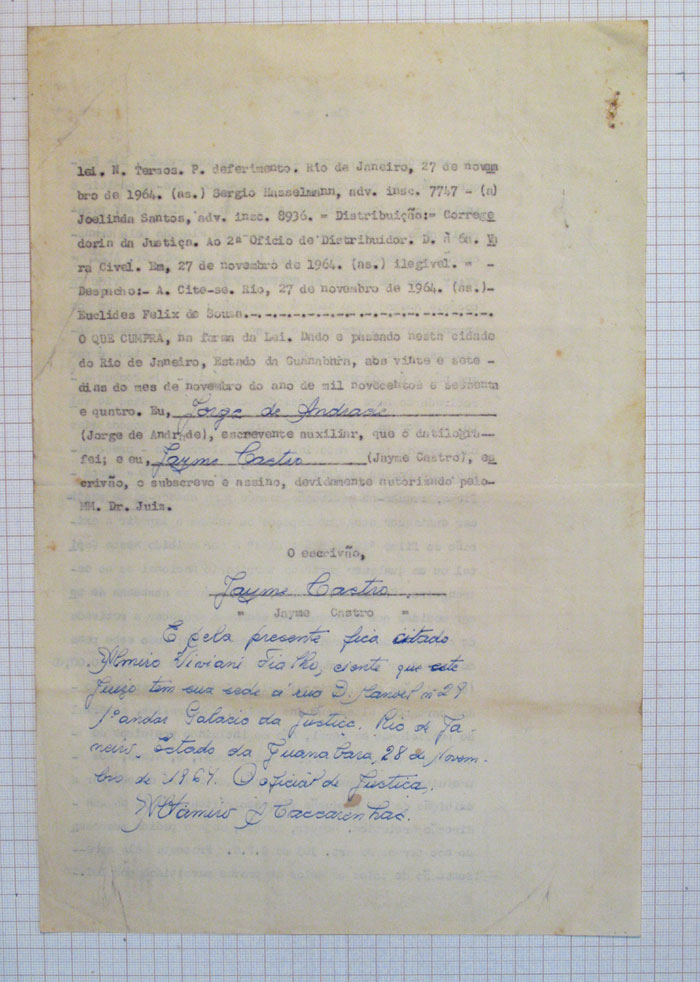 lei. N. Termos. P. deferimento. Rio de Janeiro, 27 de novem
bro de 1964. (as.) Sergio Hasselmann, adv. insc. 7747 - (a)
Joelinda Santos, adv. insc. 8936. = Distribuição:= Correge
doria da Justiça. Ao 2º Oficio de Distribuidor. D. à 6a. V
ra Civel. Em, 27 de novembro de 1964. (as.) ilegivel. = -
Despacho:- A. Cite-se. Rio, 27 de novembro de 1964. (as.)-
Euclides Felix de Sousa.-.-.-.-.-.-.-.-.-.-.-.-.-.-.-.-.
O QUE CUMPRA, na forma da Lei. Dado e passado nesta cidade
do Rio de Janeiro, Estado da Guanabara, aos vinte e sete -
dias do mes de novembro do ano de mil novecentos e sessenta
e quatro. Eu, Jorge de Andrade
(Jorge de Andrade), escrevente auxiliar, que o datilogra-
fei; e eu, Jayme Castro (Jayme Castro), es
crivão, o subscrevo e assino, devidamente autorizado pelo-
MM. Dr. Juiz.
O escrivão,
Jayme Castro
= Jayme Castro =
E pela presente fica citado
Almiro Viviani Fialho, ciente que este
Juizo tem sua sede á rua D. Manoel nº 29
1º andar Palacio da Justiça. Rio de Ja-
neiro. Estado da Guanabara, 28 de Novem-
bro de 1964. O oficial de Justiça.